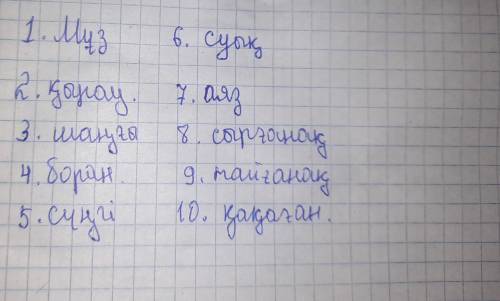 1. Мұз 6. суық
2. қырау. 7. аяз
3. шаңғы 8. сырғанақ
4. боран. 9. тайғанақ
5. сүңгі 10. қақаған.